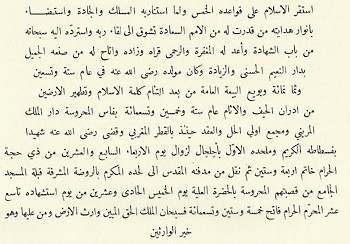 استقر الاسلام على قواعده الخمس ولما استنارت به المسلك والجادة واستضاء
بانوار هدايته من قدرت له من الامم السعادة تشوق الى لقاء ربه واستردّه اليه سبحانه
من باب الشهادة واعد له المغفرة والرحمى قراه وزاده واتاح له من صنعه الجميل
بدار النعيم الحسنى والزيادة وكان مولده رضى الله عنه في عام ستة وتسعين
وثما نمائة وبويع البيعة العامة من بعد التئام كلمة الاسلام وتطهير الارضين
من ادران الحيف والآثام عام ستة وخمسين وتسعمائة بفاس المحروسة دار الملك
المريني ومجمع اولى الحل والعقد حينئذ بالقطر المغربي وقضى رضى الله عنه شهيدا
بفسطاطه الكريم وملحده الاوّل بآجلجال لزوال يوم الاربعاء السابع والعشرين من ذي حجة
الحرام خاتم اربعة وستين ثم نقل من مدفنه المقدس الى لحده المكرم بالروضة المشرفة قبلة المسجد
الجامع من قصبتهم المحروسة بالحضرة العلية يوم الخميس الحادى وعشرين من يوم استشهاده تاسع
عشر المحرّم الحرام فاتح خمسة وستين وتسعمائة فسبحان الملك الحق المبين وارث الارض ومن عليها وهو
خير الوارثين